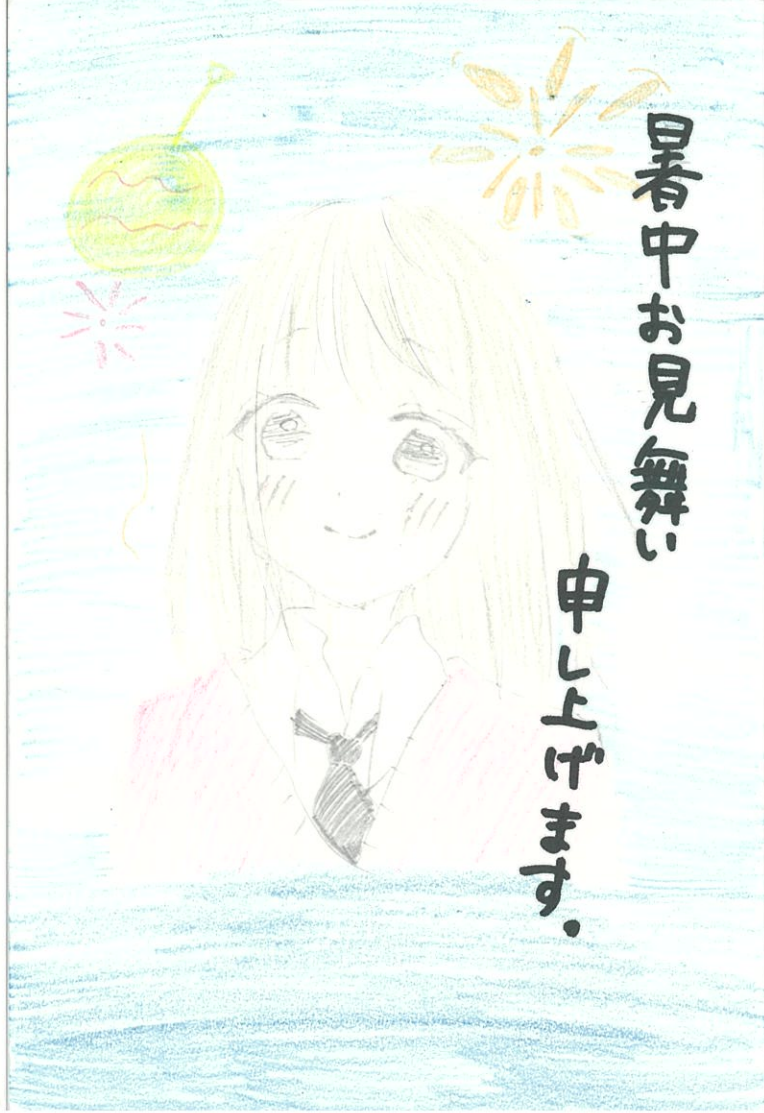 暑中お見舞い
申し上げます.